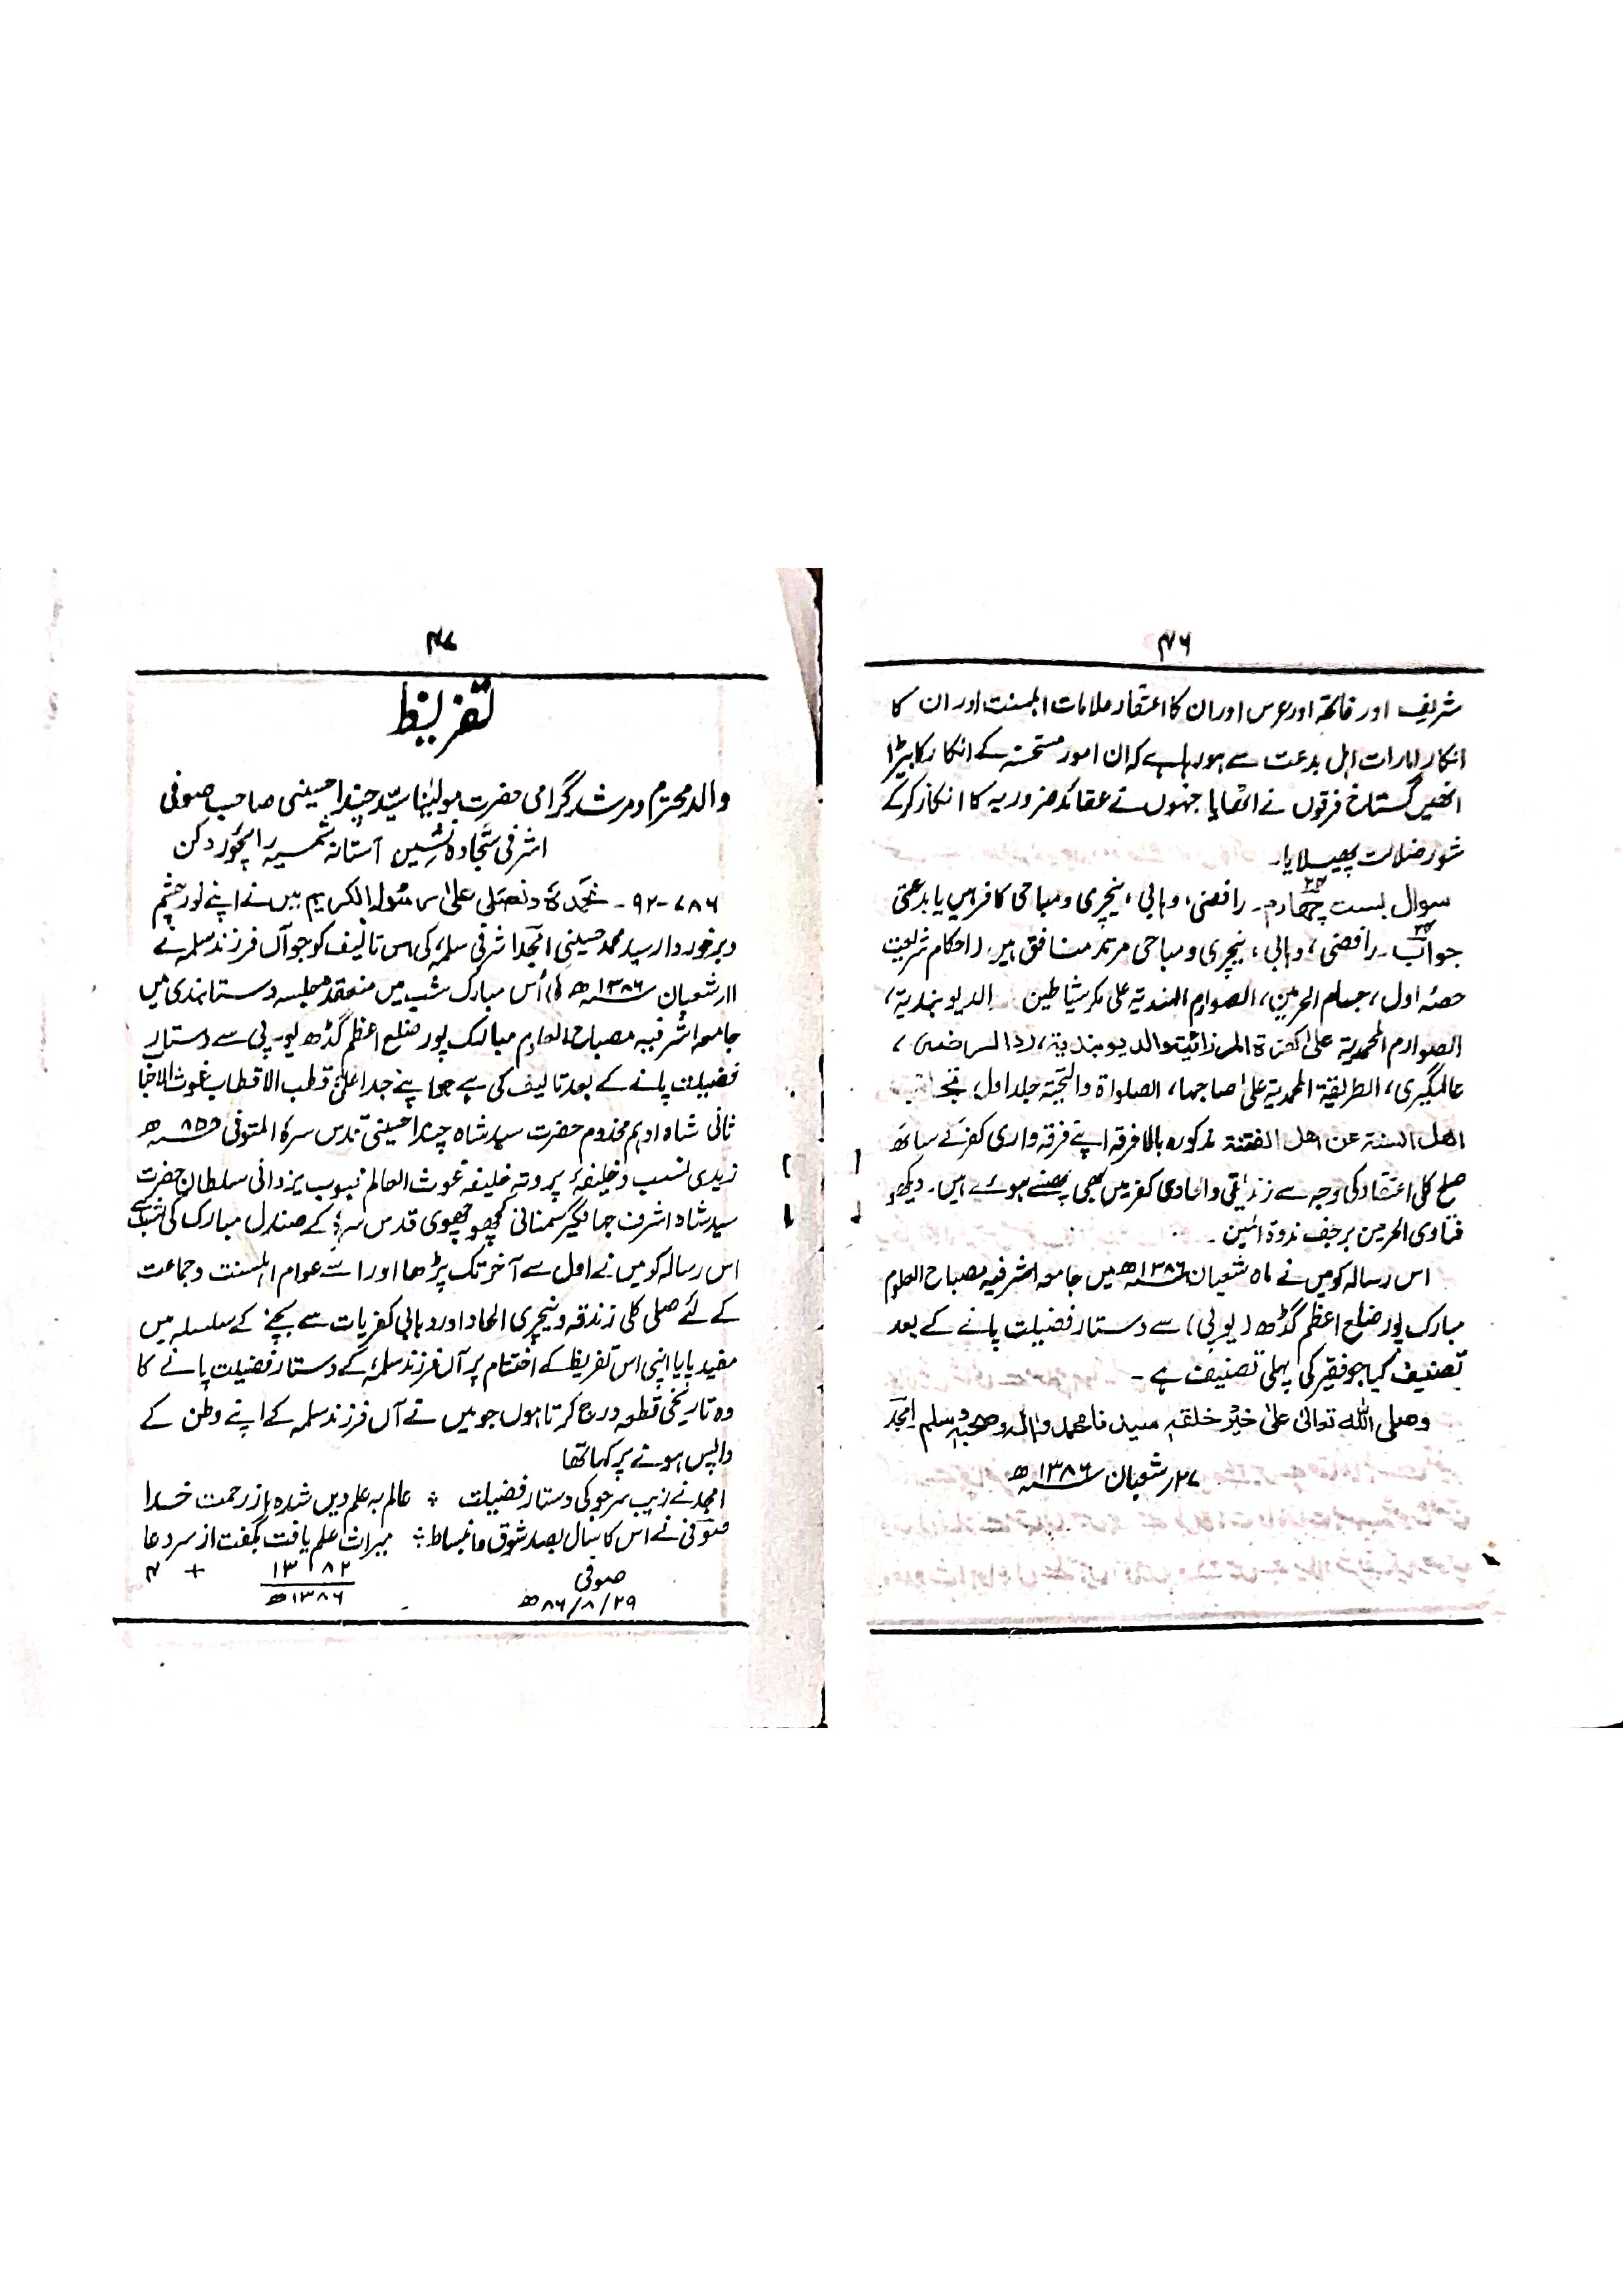 ۴۶
شریف اور فاتحہ اور عرس اور ان کا اعتقاد علامات اہلسنت اور ان کا
انکار امارات اہل بدعت سے ہو رہا ہے کہ ان امور مستحسنہ کے انکار کا بیڑا
انھیں گستاخ فرقوں نے اٹھایا جنہوں نے عقائد ضروریہ کا انکار کر کے
شور ضلالت پھیلایا۔
سوال بست چہارم۲۴۔ رافضی، وہابی، نیچری و مباحی کافر ہیں یا بدعتی
جواب۲۴۔ رافضی، وہابی، نیچری و مباحی مرتد منافق ہیں۔ (احکام شریعت
حصہ اول، حسام الحرمین، الصوارم الہندیۃ علی مکر شیاطین الدیوبندیۃ،
الصوارم المحمدیۃ علی المرزائیۃ والدیوبندیۃ، رد الرافضی،
عالمگیری، الطریقۃ المحمدیۃ علیٰ صاحبہا، الصلوٰۃ والتحیۃ جلد اول،
اھل السنۃ عن اھل الفتنۃ مذکورہ بالا فرقہ اپنے فرقہ واری کفر کے ساتھ
صلح کلی اعتقاد کی وجہ سے زندیقی و الحادی کفر میں بھی پھنسے ہوئے ہیں۔ دیکھو
فتاوی الحرمین برجف ندوۃ المین۔
اس رسالہ کو میں نے ماہ شعبان ۱۳۸۶ھ میں جامعہ اشرفیہ مصباح العلوم
مبارک پور ضلع اعظم گڈھ (یوپی) سے دستار فضیلت پانے کے بعد
تصنیف کیا جو فقیر کی پہلی تصنیف ہے۔
وصلی اللہ تعالیٰ علیٰ خیر خلقہٖ سیدنا محمد واٰلہ وصحبہٖ وسلم امجد
۲۷ رشعبان ۱۳۸۶ھ
۴۷
تقریظ
والد محترم و مرشد گرامی حضرت مولینا سید چندا حسینی صاحب صوفی
اشرفی سجادہ نشین آستانہ شمسیہ رائچور دکن
۷۸۶-۹۲۔ نحمدہٗ ونصلی علیٰ رسولہ الکریم میں نے اپنے نور چشم
و برخوردار سید محمد حسینی امجد اشرفی سلمہٗ کی اس تالیف کو جو آں فرزند سلمہ نے
۱۱ رشعبان ۱۳۸۶ھ کی اُس مبارک شب میں منعقد جلسہ دستار بندی میں
جامعہ اشرفیہ مصباح العلوم مبارک پور ضلع اعظم گڈھ یو۔پی سے دستار
فضیلت پانے کے بعد تالیف کی ہے جو اپنے جد اعلیٰ قطب الاقطاب غوث الاخیا
ثانی شاہ ادہم مخدوم حضرت سید شاہ چندا حسینی قدس سرہٗ المتوفی ۸۵۸ھ
زیدی نسب و خلیفۂ پروتہٖ خلیفہ غوث العالم محبوب یزدانی سلطان حضرت
سید شاہ اشرف جہانگیر سمنانی کچھوچھوی قدس سرہٗ کے صندل مبارک کی شب ہے
اس رسالہ کو میں نے اول سے آخر تک پڑھا اور اسے عوام اہلسنت و جماعت
کے لئے صلح کلی زندقہ و نیچری الحاد اور وہابی کفریات سے بچنے کے سلسلہ میں
مفید پایا اپنی اس تقریظ کے اختتام پر آں فرزند سلمہٗ کے دستار فضیلت پانے کا
وہ تاریخی قطعہ درج کرتا ہوں جو میں نے آں فرزند سلمہ کے اپنے وطن کے
واپس ہونے پر کہا تھا
امجد نے زیب سر جو کی دستار فضیلت ؞ عالم بہ علم دیں شدہ از رحمت خدا
صوفی نے اس کا سال بصد شوق و انبساط ؞ میراث علم یافت بگفت از سر دعا
۱۳۸۲ + ۴
صوفی
۱۳۸۶ھ
۲۹/۸/۸۶ھ